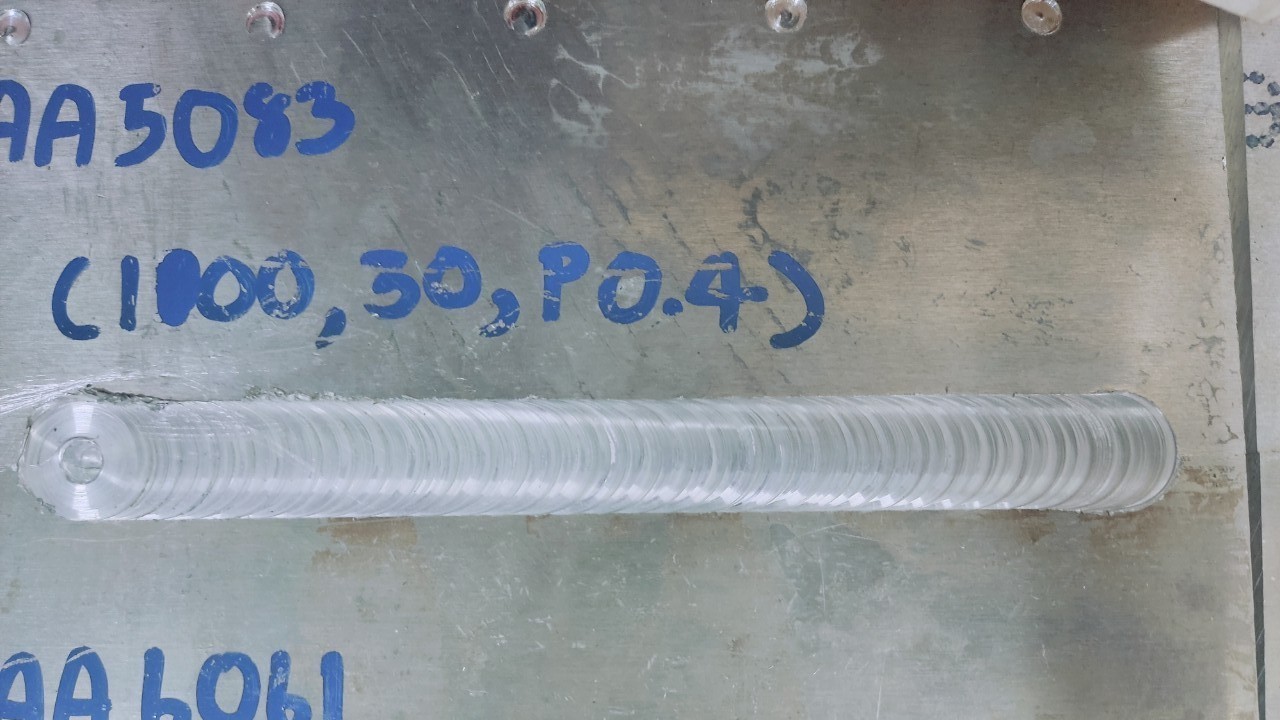 AA5083
(1000, 30, P0.4)
AA6061